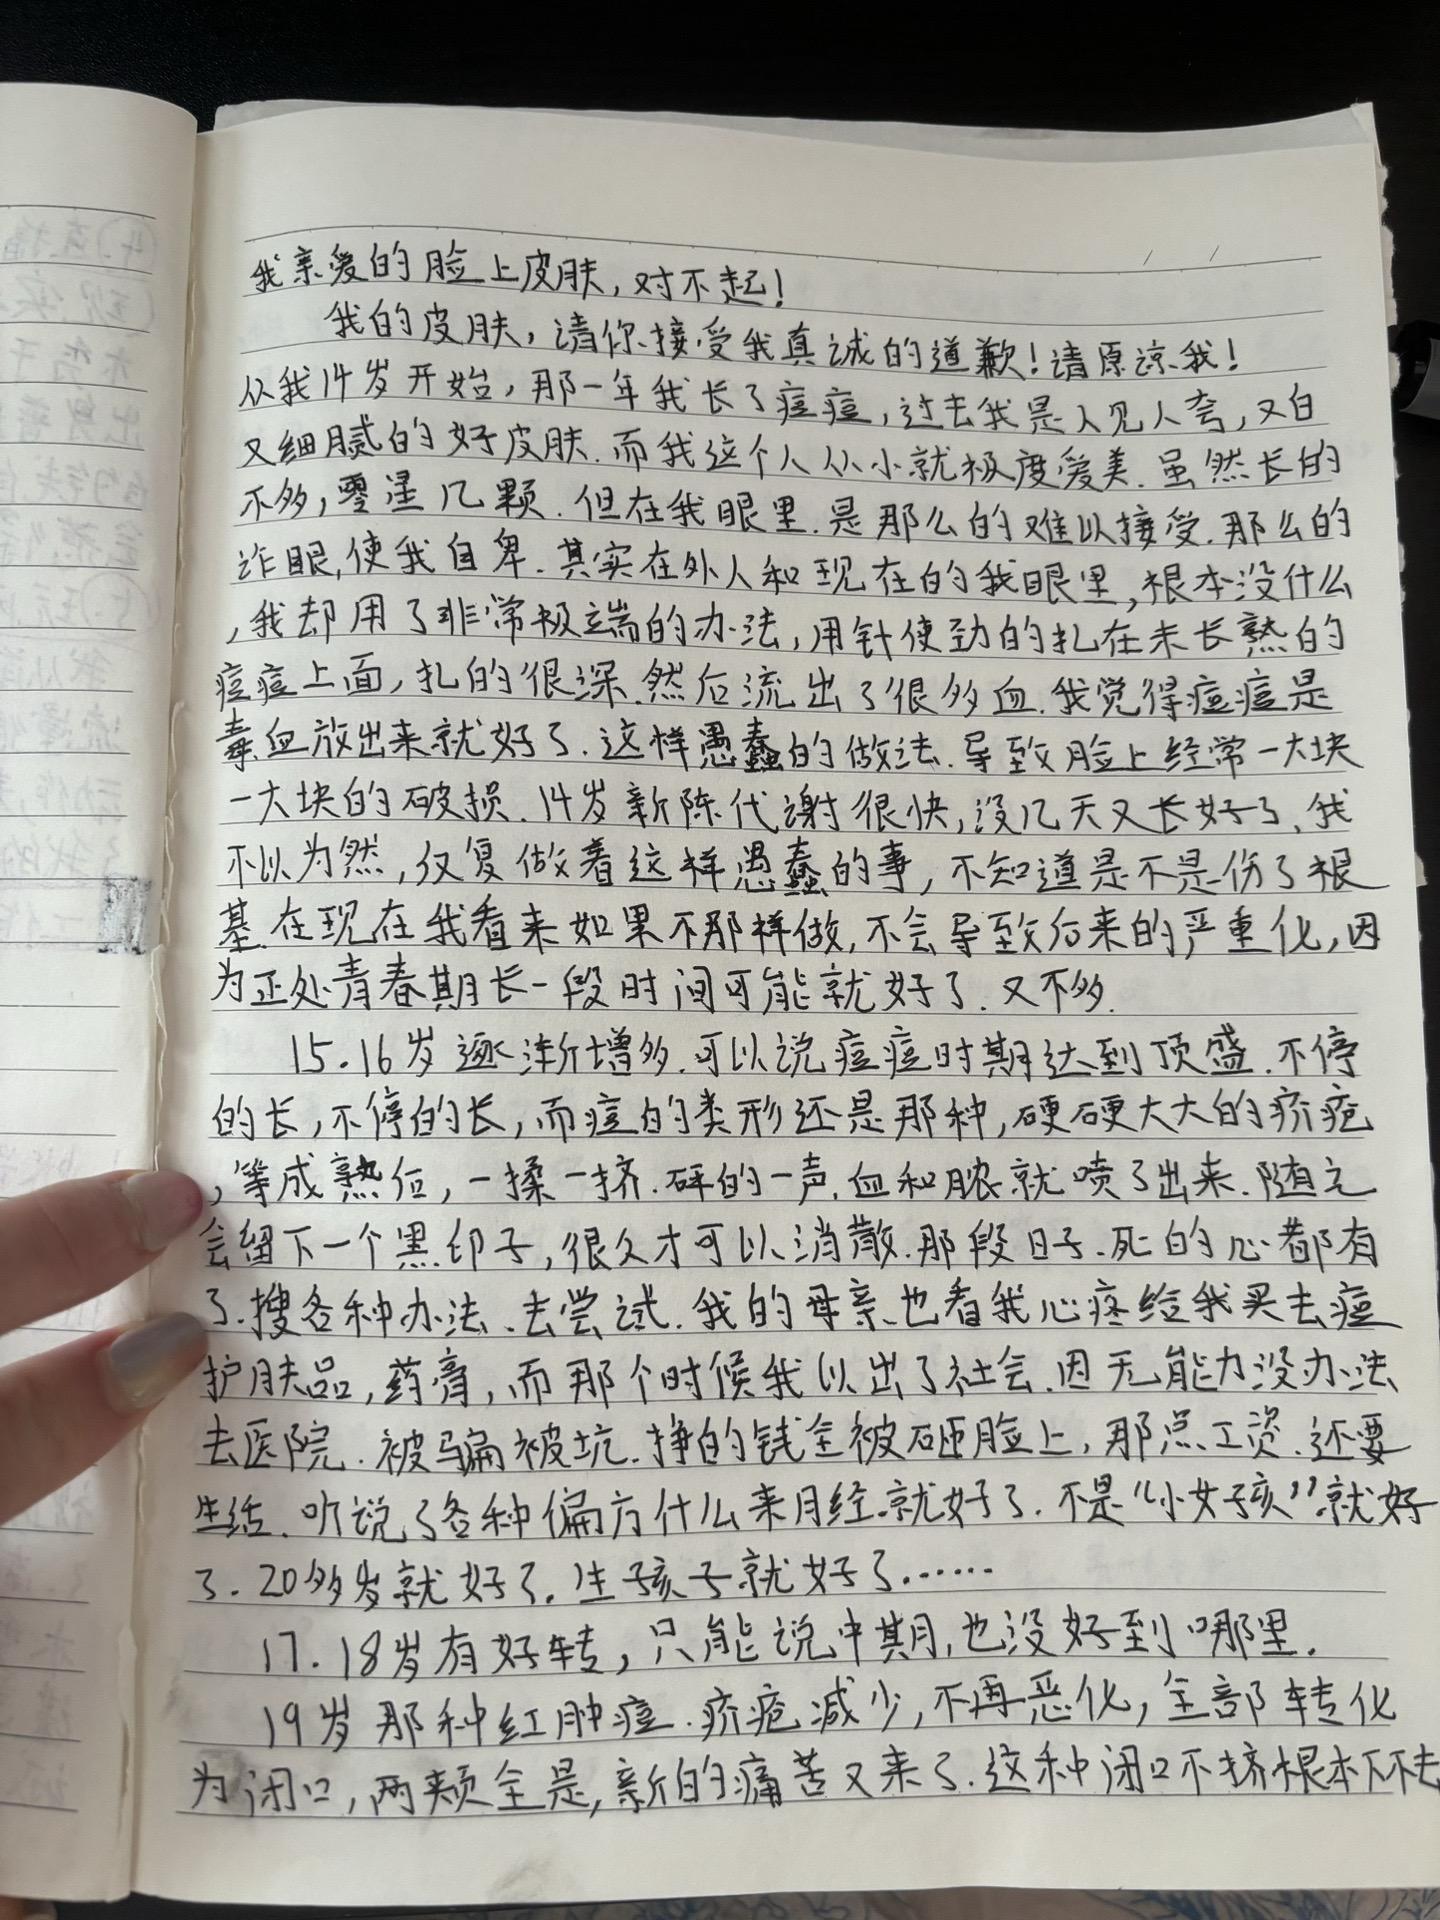 我亲爱的脸上皮肤，对不起！
我的皮肤，请你接受我真诚的道歉！请原谅我！
从我14岁开始，那一年我长了痘痘，过去我是人见人夸，又白
又细腻的好皮肤.而我这个人从小就极度爱美.虽然长的
不多，零星几颗.但在我眼里.是那么的难以接受.那么的
诈眼,使我自卑.其实在外人和现在的我眼里,根本没什么
,我却用了非常极端的办法,用针使劲的扎在未长熟的
痘痘上面,扎的很深.然后流出了很多血.我觉得痘痘是
毒.血放出来就好了.这样愚蠢的做法.导致脸上经常一大块
一大块的破损.14岁新陈代谢很快,没几天又长好了.我
不以为然,仅复做着这样愚蠢的事,不知道是不是伤了根
基.在现在我看来如果不那样做,不会导致后来的严重化,因
为正处青春期长一段时间可能就好了.又不多.
15.16岁逐渐增多.可以说痘痘时期达到顶盛.不停
的长,不停的长,而痘的类形还是那种,硬硬大大的疥疮
,等成熟后,一揉一挤.砰的一声.血和脓就喷了出来.随之
会留下一个黑印子,很久才可以消散.那段日子.死的心都有
了.搜各种办法.去尝试.我的母亲也看我心疼给我买去痘
护肤品,药膏,而那个时候我以出了社会.因无能力没办法
去医院.被骗被坑.挣的钱全被砸脸上,那点工资.还要
生活.听说了各种偏方什么来月经.就好了.不是“小女孩”就好
了.20多岁就好了.生孩子就好了……
17.18岁有好转,只能说中期,也没好到哪里.
19岁那种红肿痘.疥疮减少,不再恶化,全部转化
为闭口,两颊全是,新的痛苦又来了.这种闭口不挤根本下不去